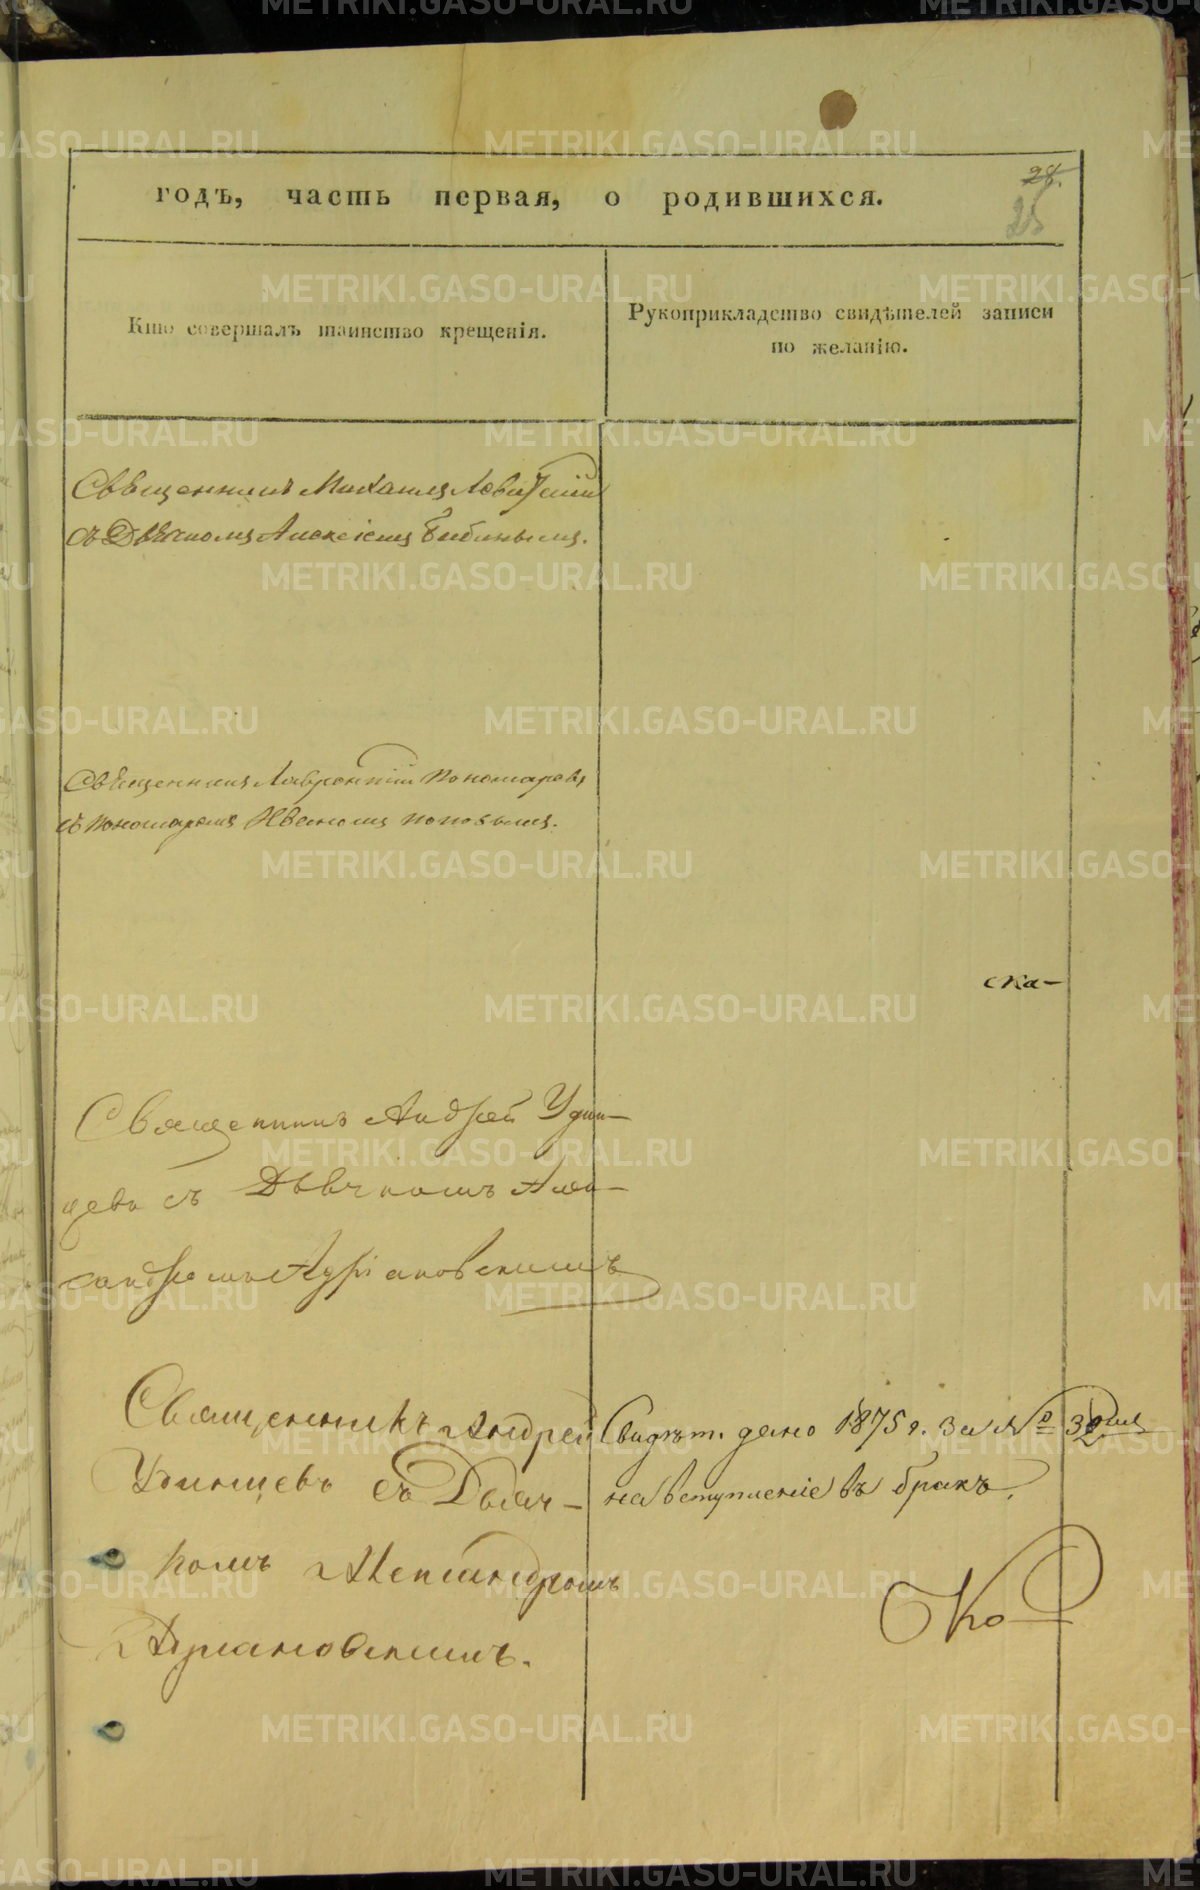 годъ, часть первая, о родившихся.
28.
25
Кто совершалъ таинство крещенія.
Рукоприкладство свидѣтелей записи
по желанію.
Священникъ Михаилъ Левитскій
съ Дьячкомъ Алексіемъ Бибинымъ.
Священникъ Лаврентій Пономаревъ
съ пономаремъ Иваномъ Поповымъ.
ска-
Священникъ Андрей Удин-
цевъ съ Дьячкомъ Алек-
сандромъ Адріановскимъ
Священникъ Андрей
Удинцевъ съ Дьяч-
комъ Александромъ
Адріановскимъ.
Свидѣт. дано 1875 г. За №
на вступленіе въ бракъ.
METRIKI.GASO-URAL.RU